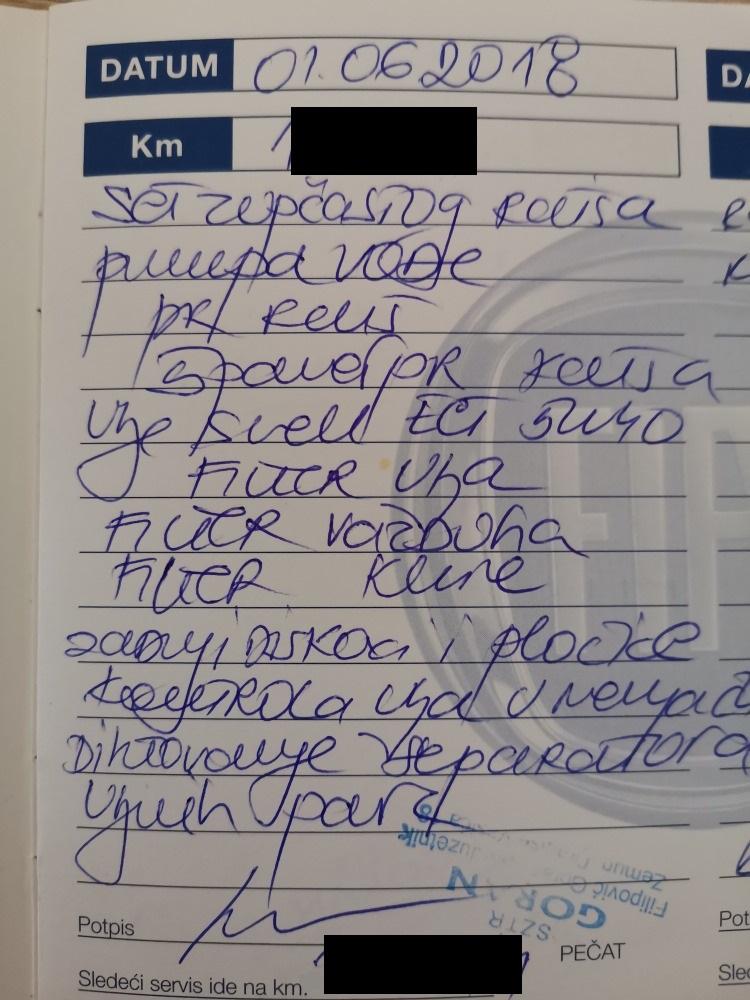 DATUM 01.06 2018
Km 1
SET zupčastog kaiša
pumpa vode
pk kaiš
španer pk kaiša
Ulje Shell ECT 5W40
FILTER Ulja
FILTER vazduha
FILTER Klime
zadnji diskovi i pločice
kontrola ulja u menjač
Dihtovanje separatora
Uljnih para
SZTR
GORAN
Filipović
Zemun
Potpis
PEČAT
Sledeći servis ide na km.